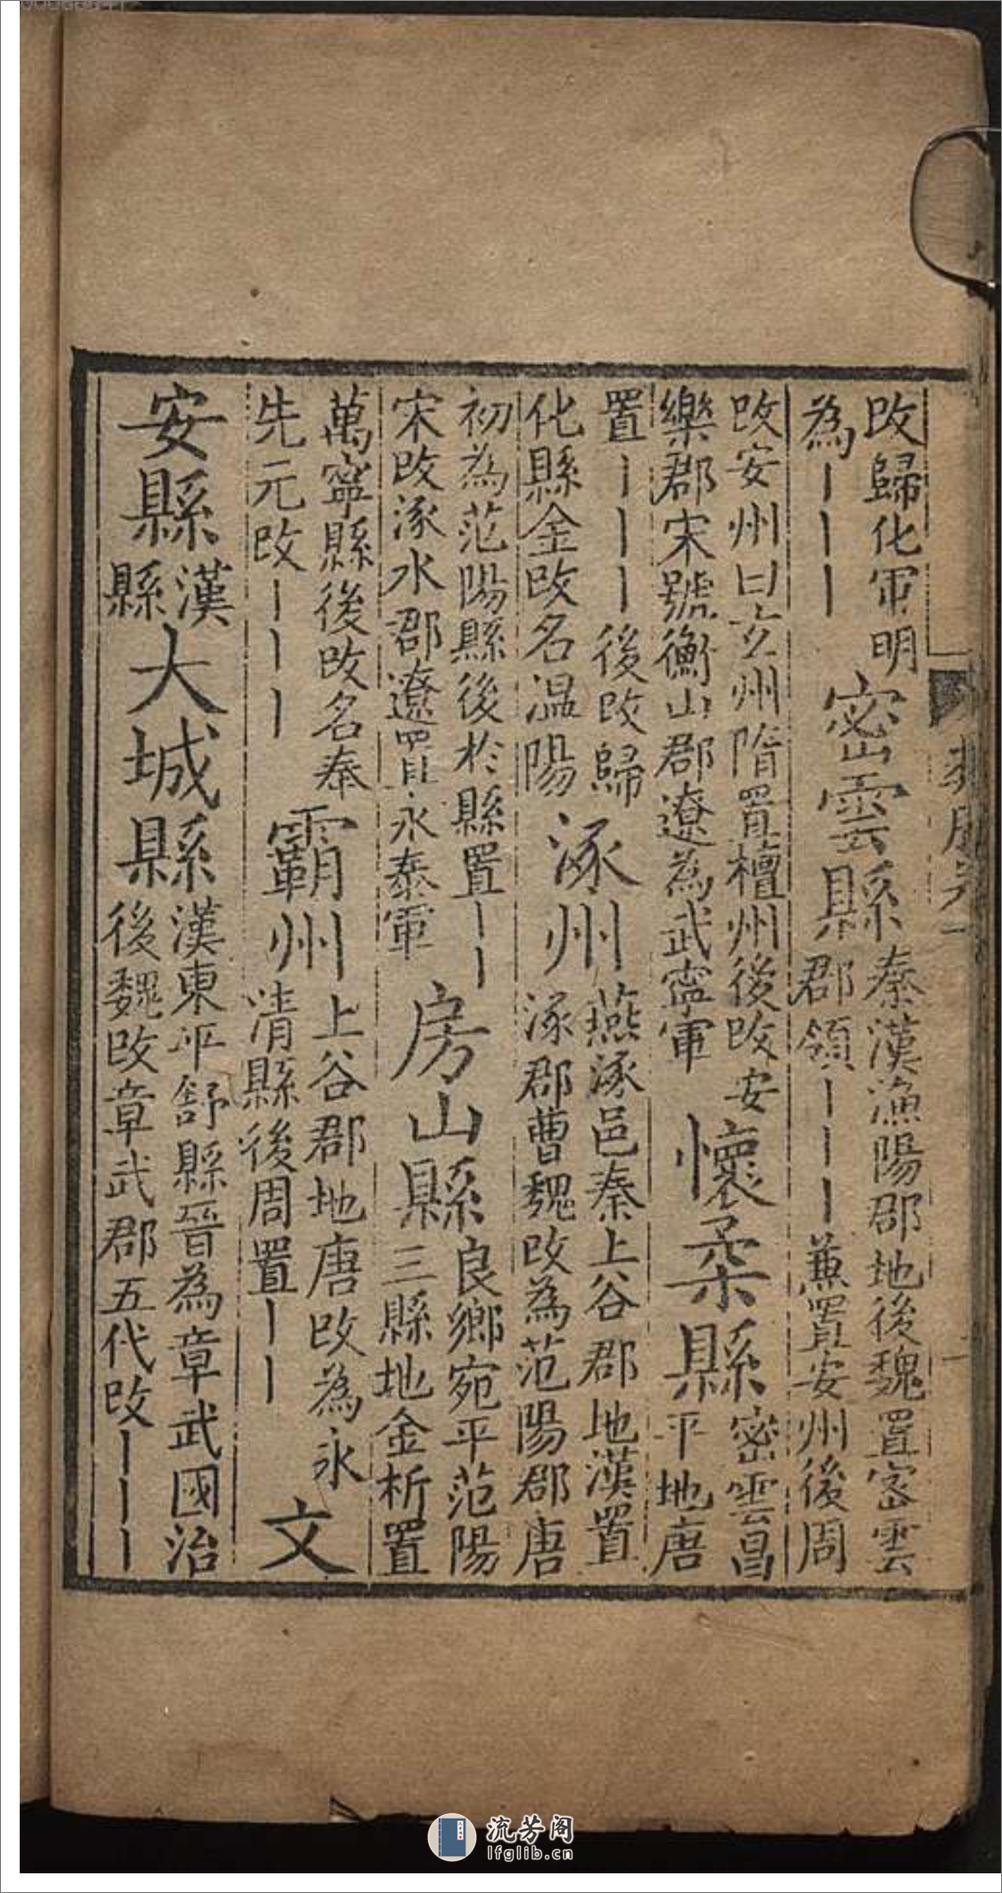 改歸化軍明
為丨丨丨
密雲縣
秦漢漁陽郡地後魏置密雲
郡領丨丨丨兼置安州後周
改安州曰玄州隋置檀州後改安
樂郡宋號衡山郡遼為武寧軍
懷柔縣
密雲昌
平地唐
置丨丨丨後改歸
化縣金改名溫陽
涿州
燕涿邑秦上谷郡地漢置
涿郡曹魏改為范陽郡唐
初為范陽縣後於縣置丨丨
宋改涿水郡遼置永泰軍
房山縣
良鄉宛平范陽
三縣地金析置
萬寧縣後改名奉
先元改丨丨丨
霸州
上谷郡地唐改為永
清縣後周置丨丨
文
安縣
漢
縣
大城縣
漢東平舒縣晉為章武國治
後魏改章武郡五代改丨丨丨
流芳阁
lfglib.cn